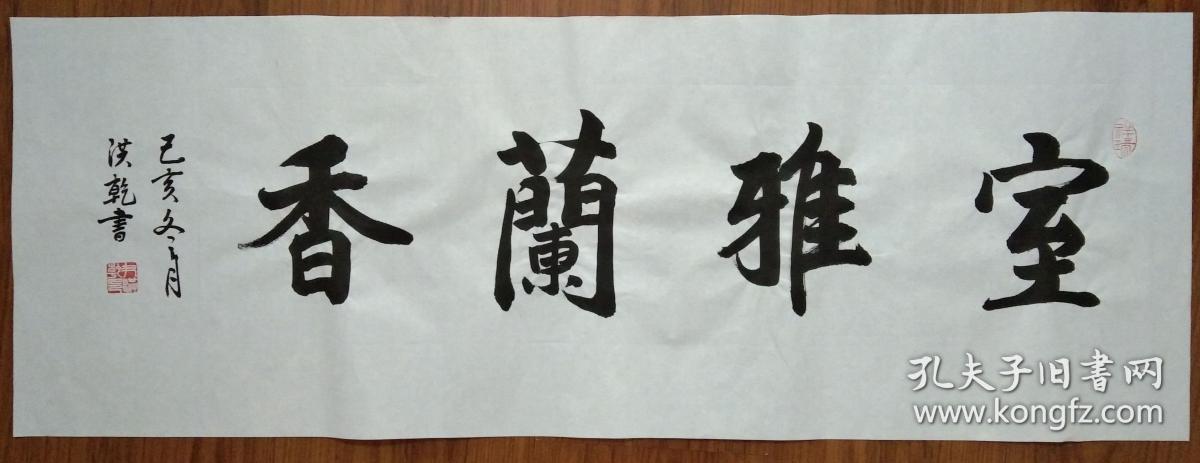 室雅蘭香
己亥冬月
洪乾書
孔夫子旧书网
www.kongfz.com